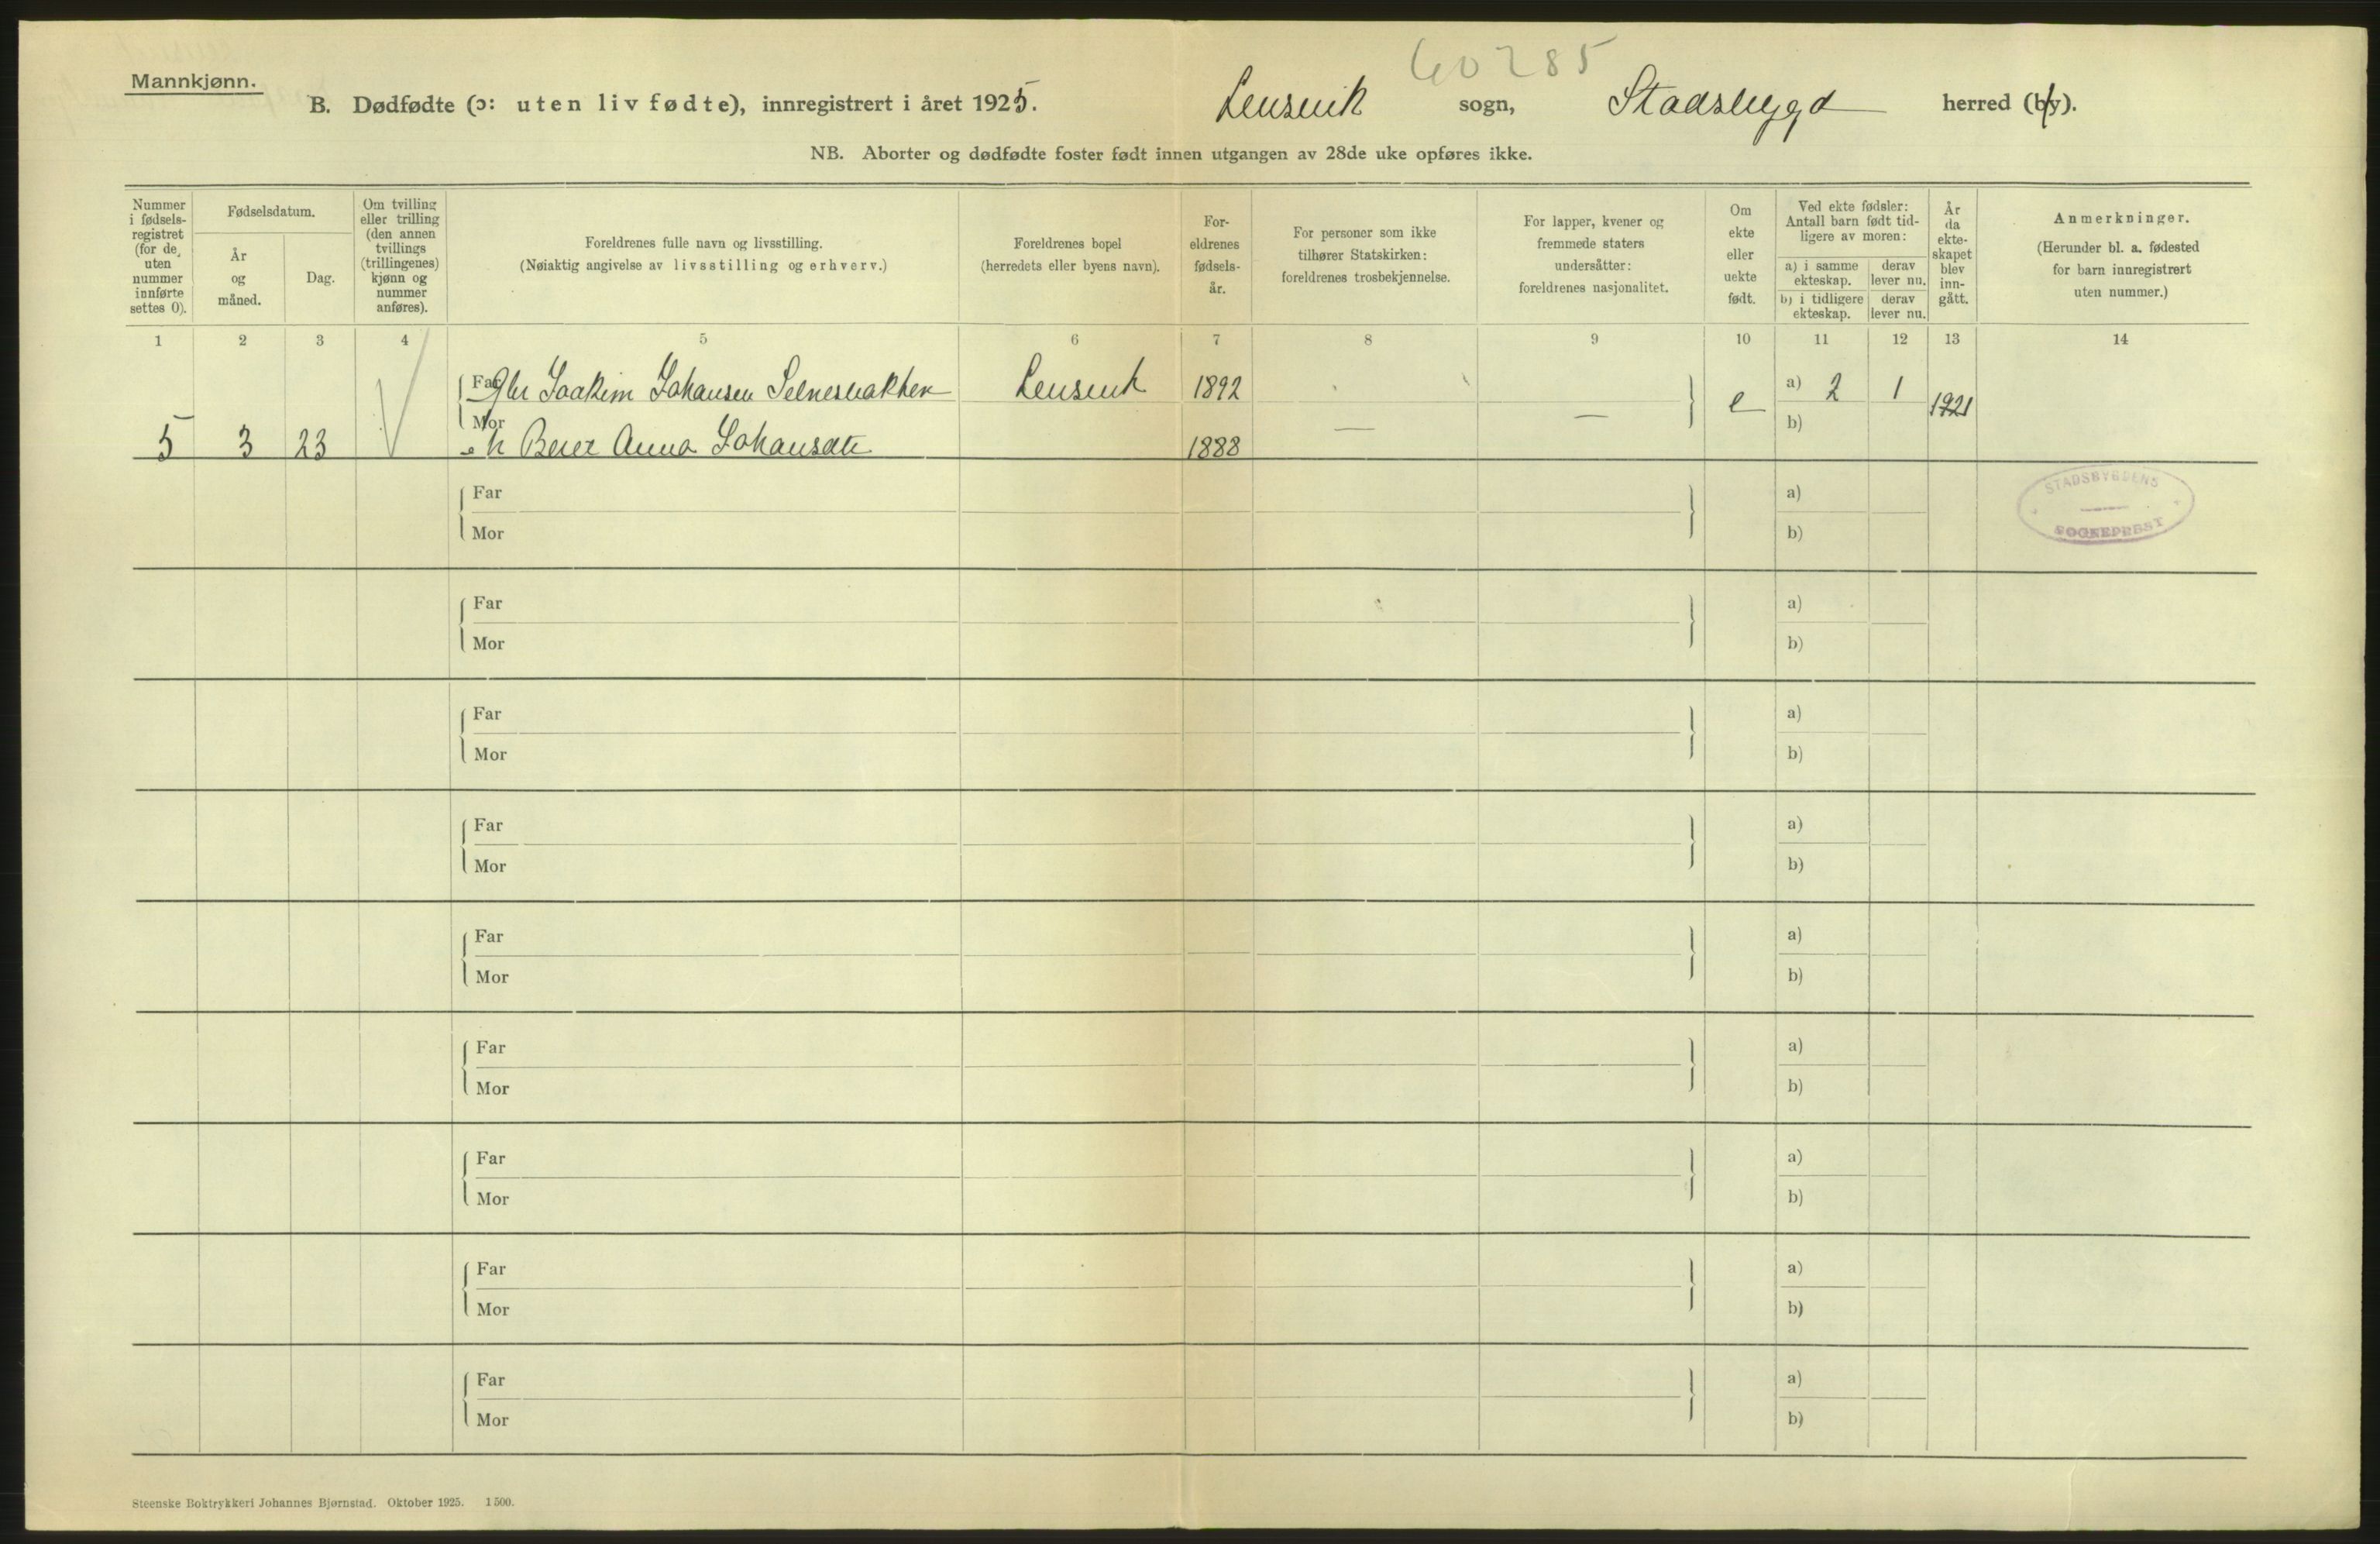 60285
Mannkjønn.
B. Dødfødte (ɔ: uten liv fødte), innregistrert i året 1925. Lensvik sogn, Stadsbygd herred (by).
NB. Aborter og dødfødte foster født innen utgangen av 28de uke opføres ikke.
Nummer i fødsels-registret (for de uten nummer innførte settes 0).
Fødselsdatum.
År og måned.
Dag.
Om tvilling eller trilling (den annen tvillings (trillingenes) kjønn og nummer anføres).
Foreldrenes fulle navn og livsstilling.
(Nøiaktig angivelse av livsstilling og erhverv.)
Foreldrenes bopel
(herredets eller byens navn).
For-eldrenes fødsels-år.
For personer som ikke tilhører Statskirken: foreldrenes trosbekjennelse.
For lapper, kvener og fremmede staters undersåtter: foreldrenes nasjonalitet.
Om ekte eller uekte født.
Ved ekte fødsler: Antall barn født tid-ligere av moren:
a) i samme ekteskap.
derav lever nu.
b) i tidligere ekteskap.
derav lever nu.
År da ekte-skapet blev inn-gått.
Anmerkninger.
(Herunder bl. a. fødested for barn innregistrert uten nummer.)
1 2 3 4 5 6 7 8 9 10 11 12 13 14
Far Joakim Johansen Selnesbakken Lensvik 1892 e a) 2 1 1921
5 3 23 Mor Anna Johansdt 1888 b)
STADSBYGDENS
SOGNEPREST
Far a)
Mor b)
Far a)
Mor b)
Far a)
Mor b)
Far a)
Mor b)
Far a)
Mor b)
Far a)
Mor b)
Far a)
Mor b)
Far a)
Mor b)
Far a)
Mor b)
Steenske Boktrykkeri Johannes Bjørnstad. Oktober 1925. 1500.